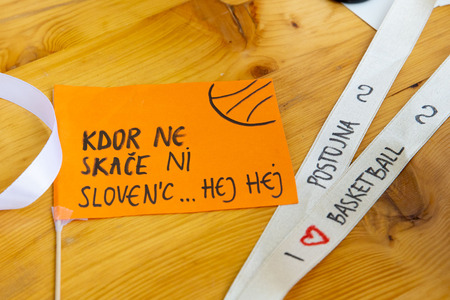 KDOR NE
SKAČE NI
SLOVEN'C... HEJ HEJ
POSTOJNA
I ♥ BASKETBALL